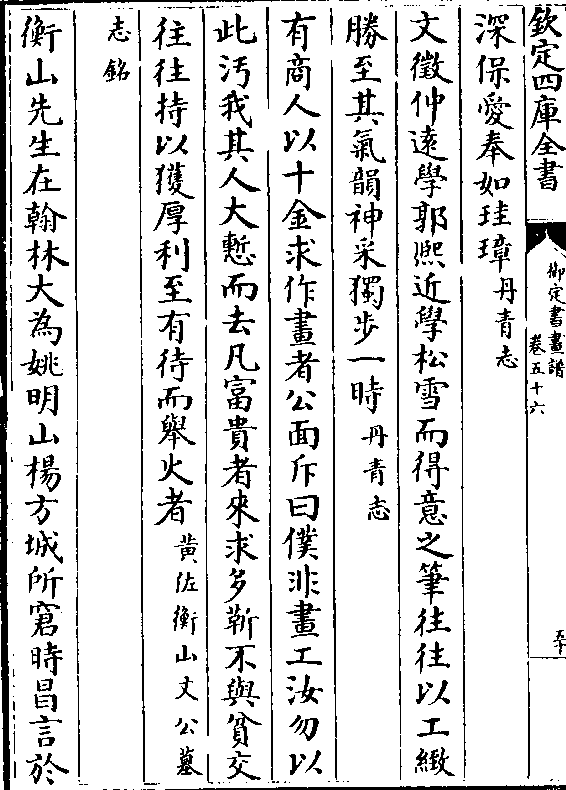 欽定四庫全書
御定書畫譜
卷五十六
五十
深保愛奉如珪璋丹青志
文徵仲遠學郭熙近學松雪而得意之筆往往以工緻
勝至其氣韻神采獨步一時丹青志
有商人以十金求作畫者公面斥曰僕非畫工汝勿以
此汚我其人大慙而去凡富貴者來求多靳不與貧交
往往持以獲厚利至有待而舉火者黃佐衡山文公墓
志銘
衡山先生在翰林大為姚明山楊方城所窘時昌言於